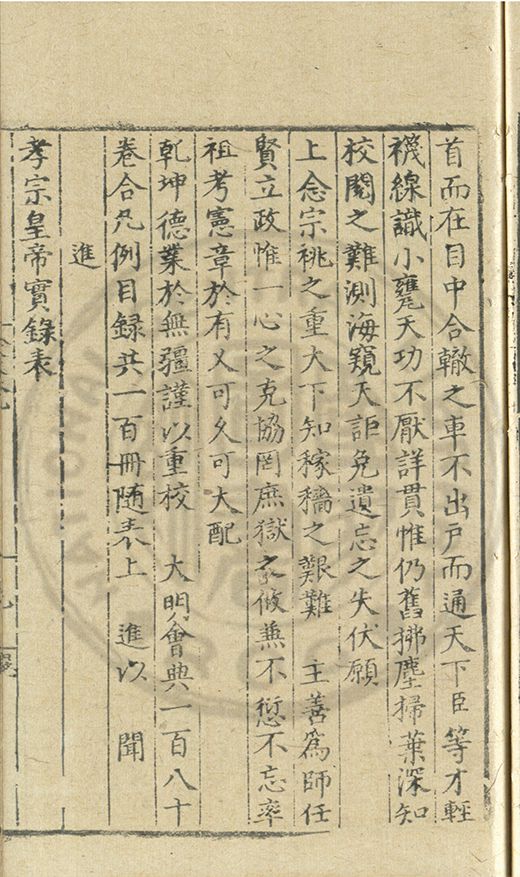 首而在目中合轍之車不出戶而通天下臣等才輕
襪線識小甕天功不厭詳貫惟仍舊拂塵掃葉深知
校閱之難測海窺天詎免遺忘之失伏願
上念宗祧之重大下知稼穡之艱難 主善為師任
賢立政惟一心之克協罔庶獄之攸兼不愆不忘率
祖考憲章於有乂可久可大配
乾坤德業於無疆謹以重校 大明會典一百八十
卷合凡例目録共一百冊隨表上 進以 聞
進
孝宗皇帝實錄表